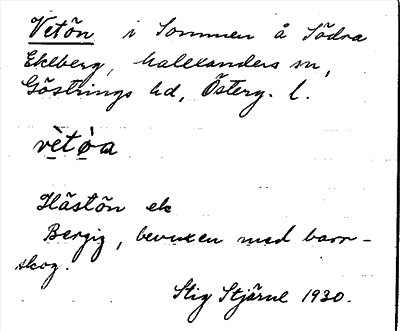 Vetön i Sommen å Södra
Ekeberg, Malexanders sn,
Göstrings hd, Österg. l.
vètòa
Hästön ek
Bergig, bevuxen med barr-
skog.
Stig Stjärne 1930.